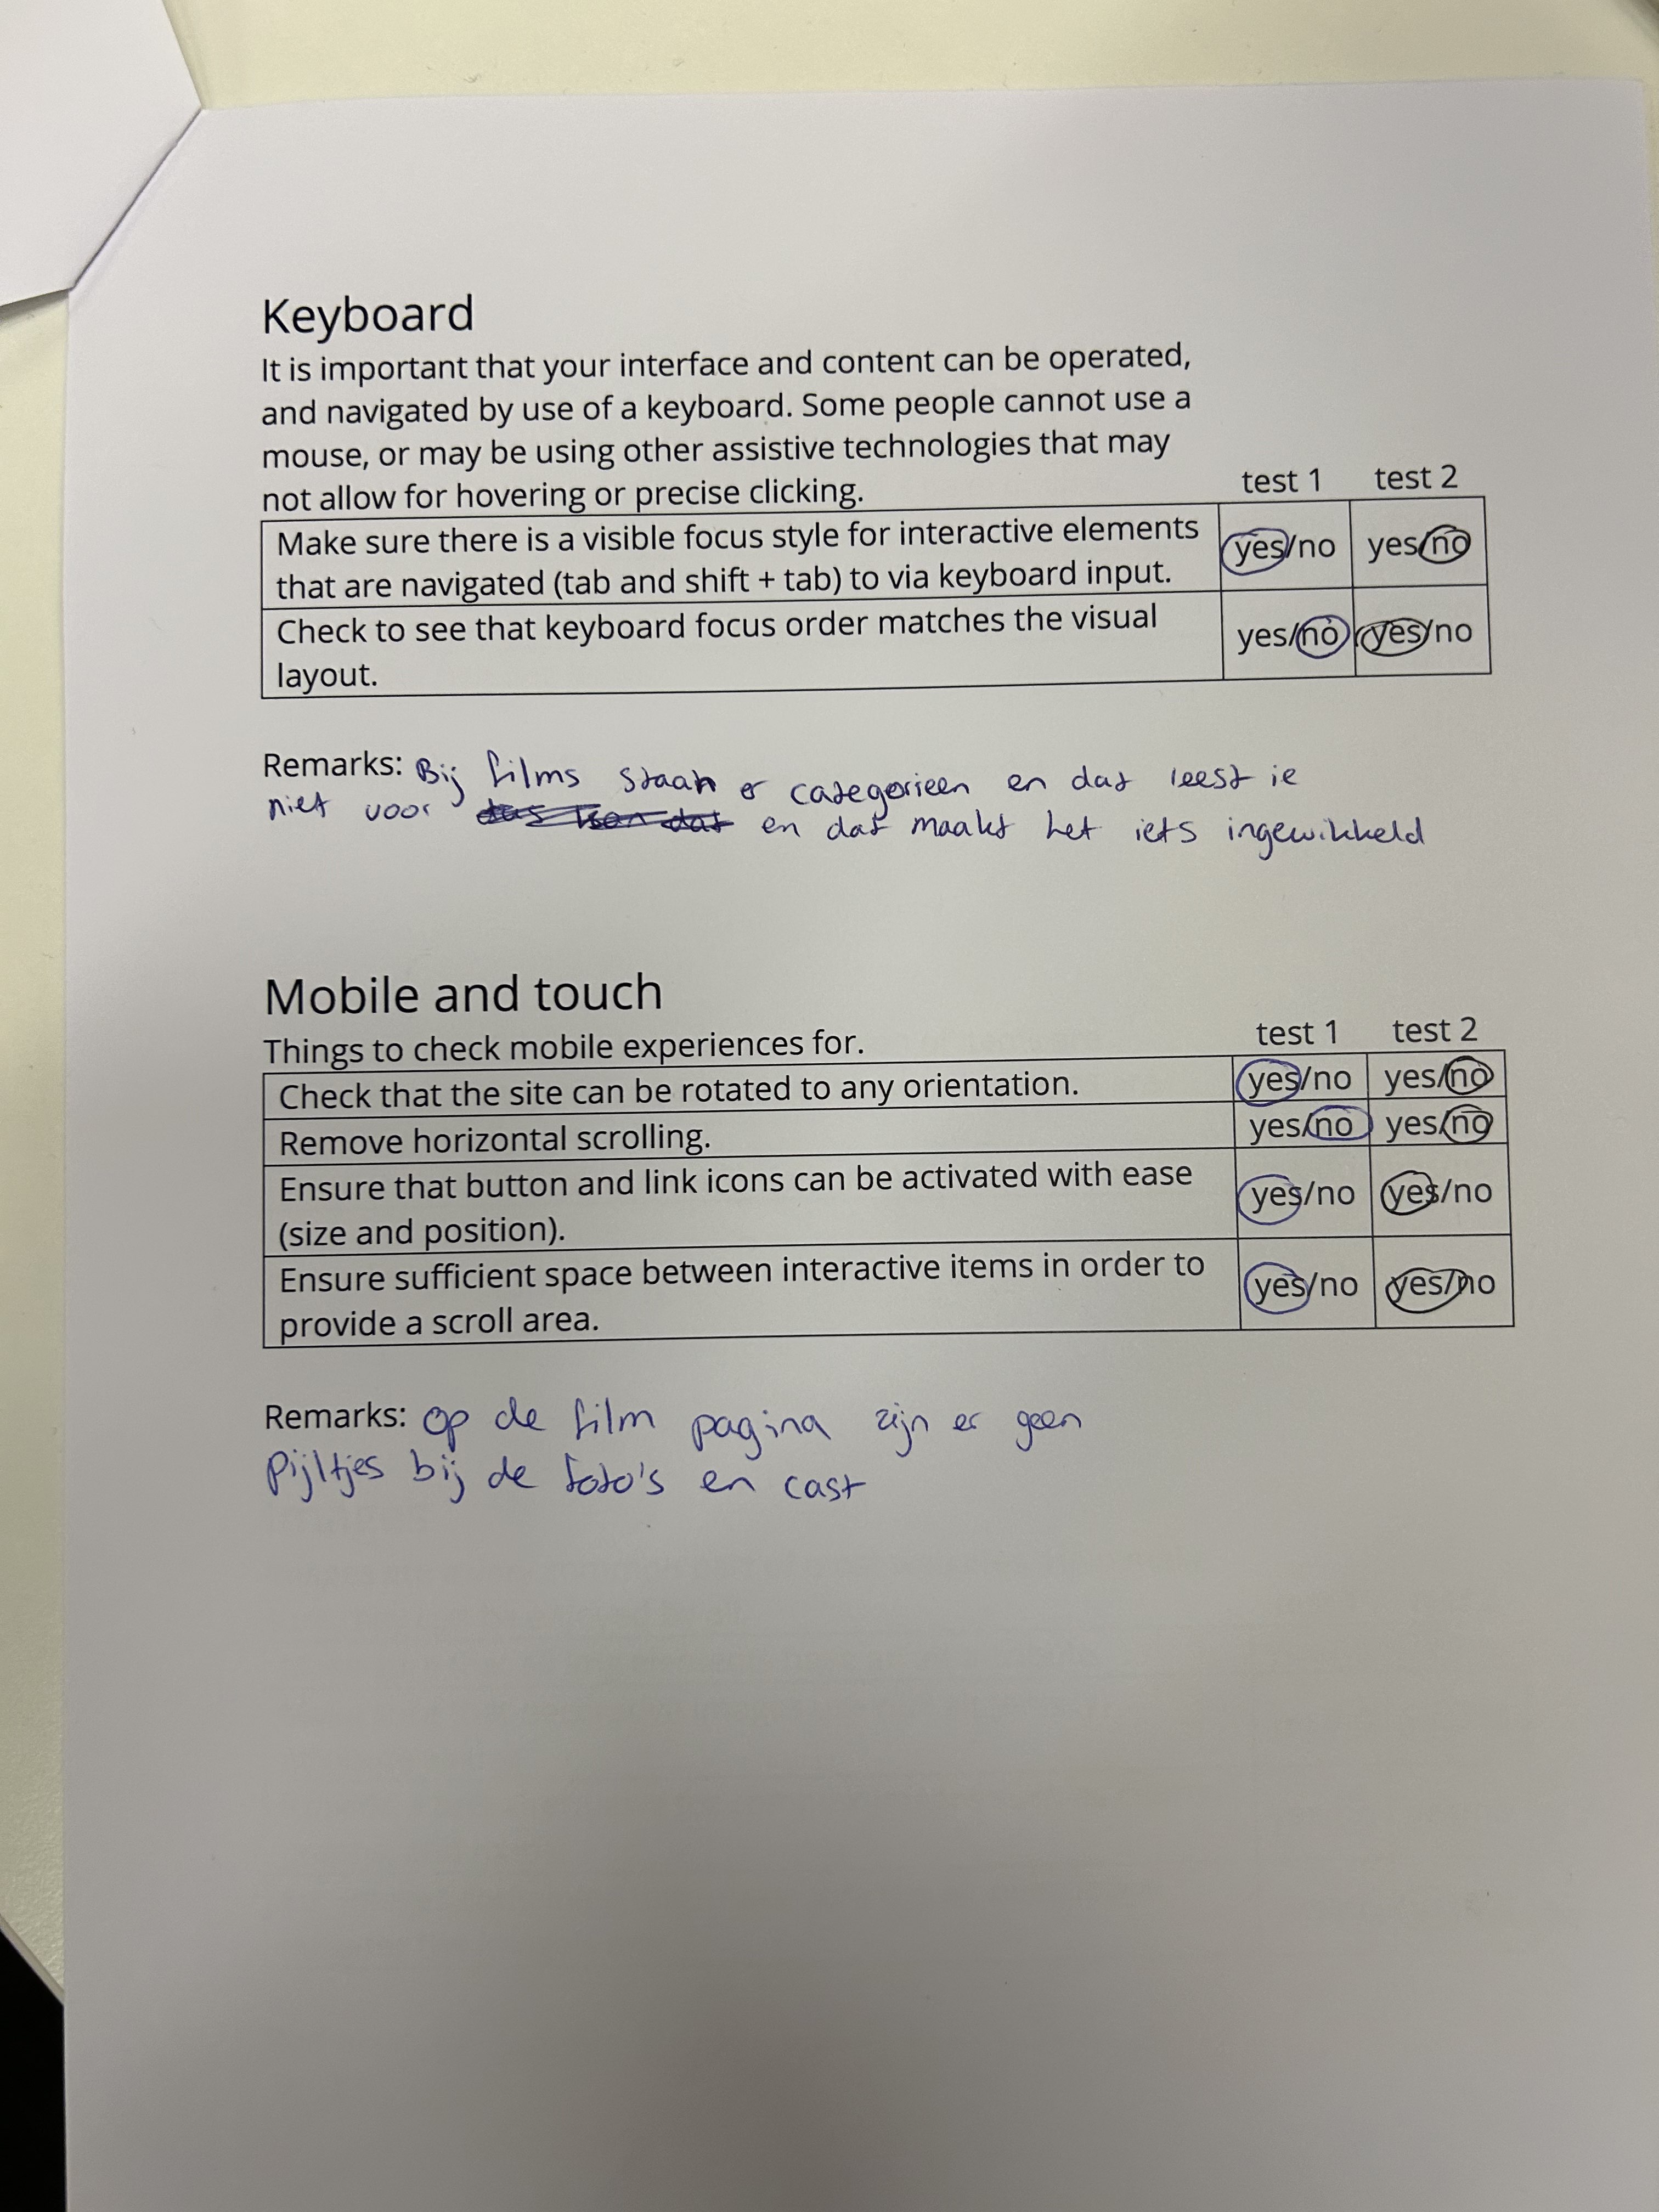 Keyboard
It is important that your interface and content can be operated,
and navigated by use of a keyboard. Some people cannot use a
mouse, or may be using other assistive technologies that may
not allow for hovering or precise clicking.
test 1 test 2
Make sure there is a visible focus style for interactive elements
that are navigated (tab and shift + tab) to via keyboard input.
yes/no yes/no
Check to see that keyboard focus order matches the visual
layout.
yes/no yes/no
Remarks: Bij films staan er categorieen en dat leest ie
niet voor en dat maakt het iets ingewikkeld
Mobile and touch
Things to check mobile experiences for.
test 1 test 2
Check that the site can be rotated to any orientation. yes/no yes/no
Remove horizontal scrolling. yes/no yes/no
Ensure that button and link icons can be activated with ease
(size and position).
yes/no yes/no
Ensure sufficient space between interactive items in order to
provide a scroll area.
yes/no yes/no
Remarks: Op de film pagina zijn er geen
Pijltjes bij de foto's en cast